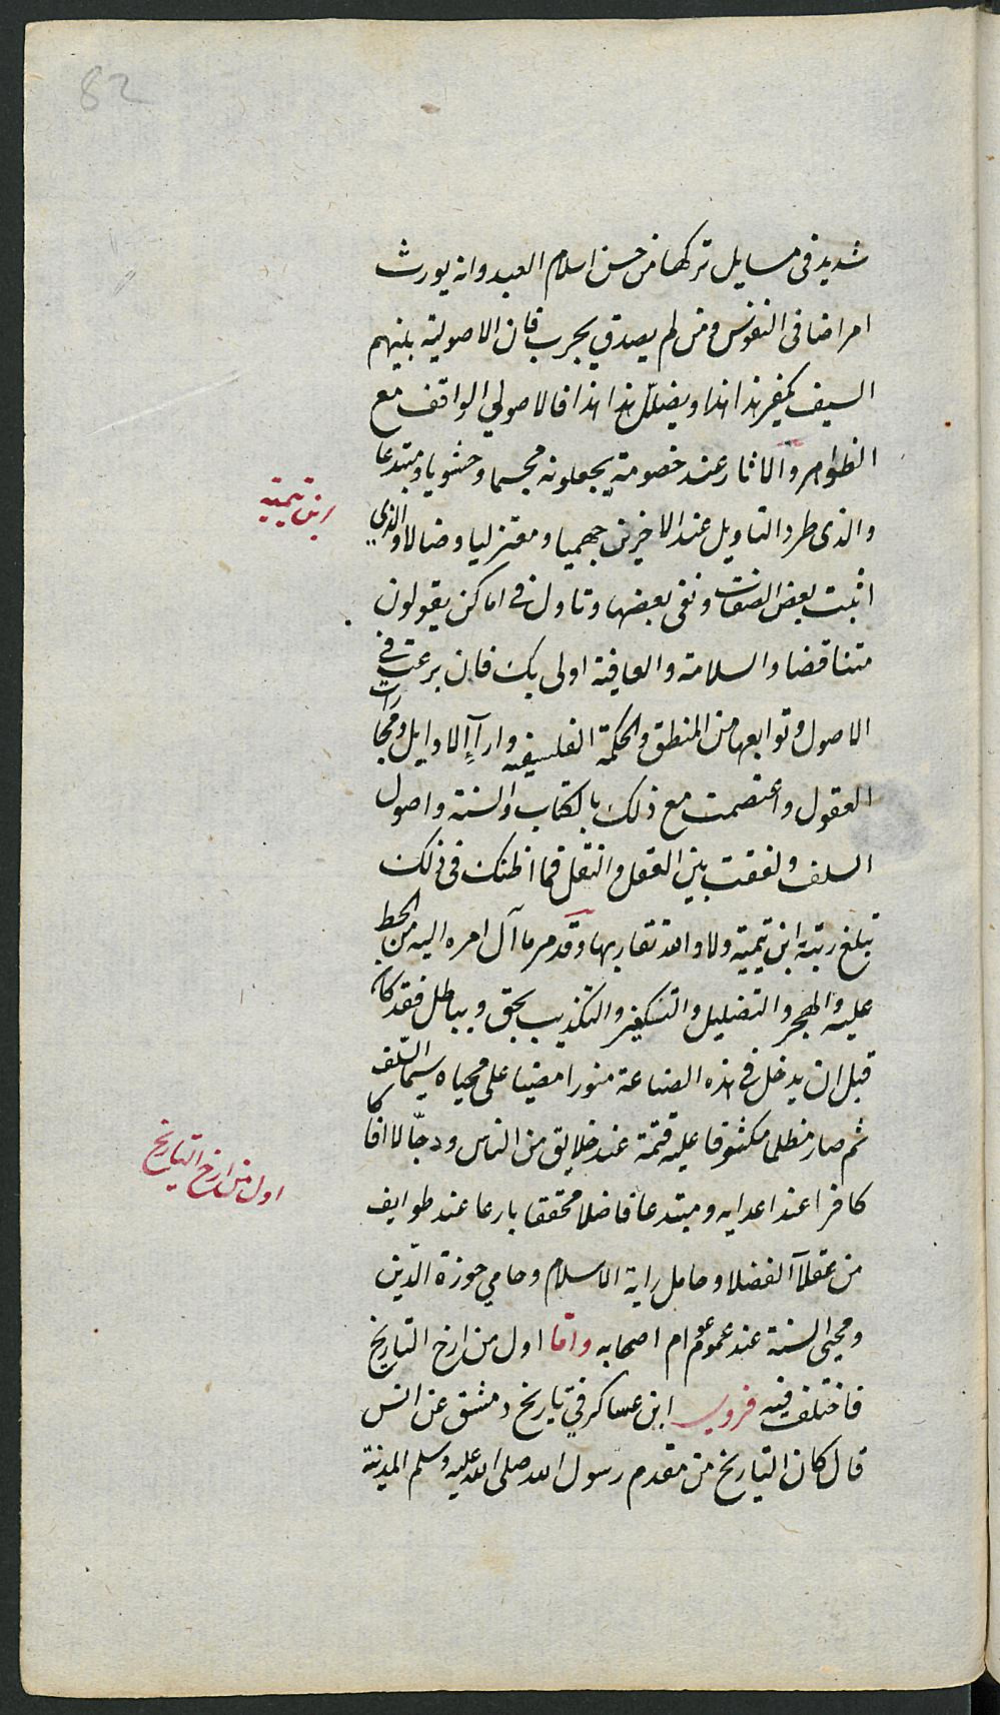 82
شديد فى مسايل تركها من حسن اسلام العبد وانه يورث
امراضا فى النفوس ومن لم يصدق يجرب فان الاصولية بينهم
السيف يكفر هذا هذا ويضلل هذا هذا فالاصولي الواقف مع
الظواهر والاثار عند خصومة يجعلونه مجسما وحشويا ومبتدعا
والذى طرد التاويل عند الاخرين جهميا ومعتزليا وضالا والذي
ابن تيمية
اثبت بعض الصفات ونفى بعضها وتاول في اماكن يقولون
متناقضا والسلامة والعافية اولى بك فان برعت في
الاصول وتوابعها من المنطق والحكمة الفلسفيه وارآ الاوايل ومجارات
العقول واعتصمت مع ذلك بالكتاب والسنة واصول
السلف ولفقت بين العقل والنقل فما اظنك فى ذلك
تبلغ رتبة ابن تيمية ولا والله تقاربها وقد مر ما آل امره اليه من الحط
عليه والهجر والتضليل والتكفير والتكذيب بحق وبباطل فقد كان
قبل ان يدخل في هذه الصناعة منورا مضيئا على محياه سيما السلف
ثم صار مظلما مكشوفا عليه قتمة عند خلايق من الناس ودجّالا افاكا
اول من ارخ التاريخ
كافرا عند اعدايه ومبتدعا فاضلا محققا بارعا عند طوايف
من عقلآ الفضلا وحامل راية الاسلام وحامي حوزة الدّين
ومحيى السنة عند عموم عوام اصحابه واما اول من ارخ التاريخ
فاختلف فيه فروى ابن عساكر فى تاريخ دمشق عن انس
قال كان التاريخ من مقدم رسول الله صلى الله عليه وسلم المدينة